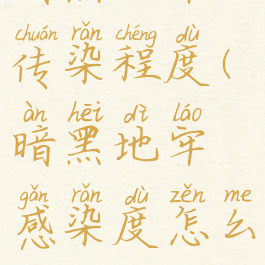 chuán rǎn chéng dù
传染程度(
àn hēi dì láo
暗黑地牢
gǎn rǎn dù zěn me
感染度怎么